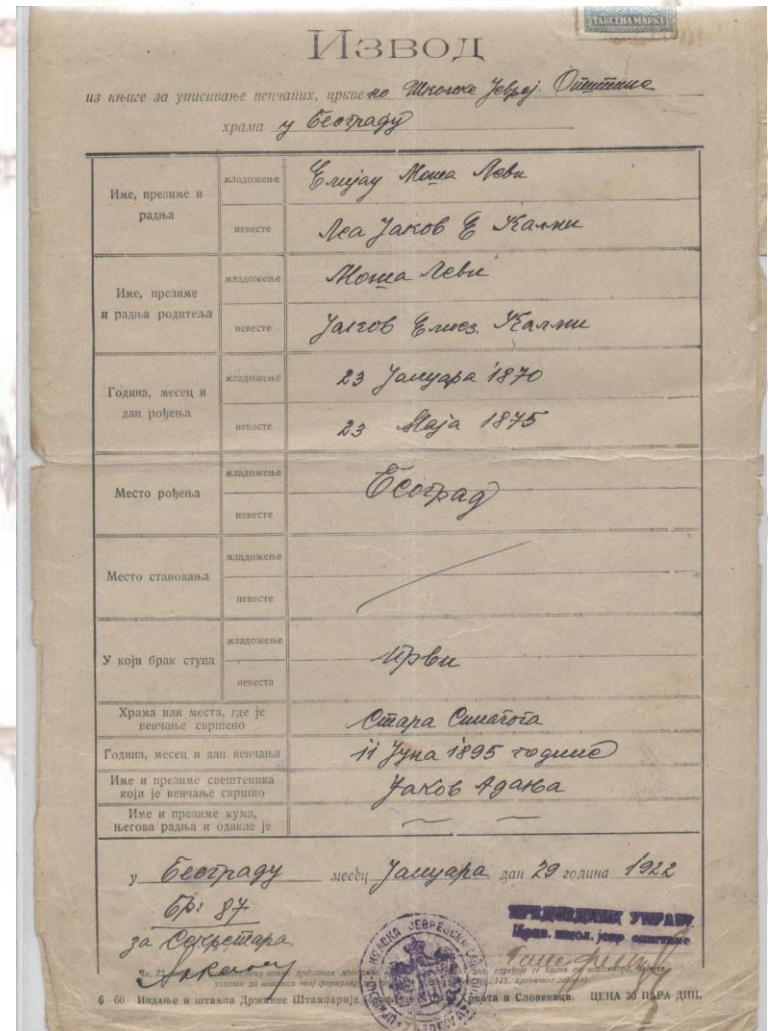 ТАКСЕНА МАРКА
Извод
из књиге за уписивање венчаних, цркве но Школске Јевреј. Општине
храма у Београду
Име, презиме и радња
младожење Елијау Моша Леви
невесте Леа Јаков Е Калми
Име, презиме и радња родитеља
младожење Моша Леви
невесте Јаков Елиез. Калми
Година, месец и дан рођења
младожење 23 Јануара 1870
невесте 23 Маја 1875
Место рођења
младожење Београд
невесте
Место становања
младожење
невесте
У који брак ступа
младожење Први
невеста
Храма или места, где је венчање свршено Стара Синагога
Година, месец и дан венчања 11 Јуна 1895 године
Име и презиме свештеника који је венчање свршио Јаков Адања
Име и презиме кума, његова радња и одакле је
у Београду месец Јануара дан 29 година 1922
Бр: 87
за Секретара
ПРЕДСЕДНИК УПРАВЕ
Цркв. школ. јевр општине
6—60 Издање и штампа Државне Штампарије Хрвата и Словенаца. ЦЕНА 30 ПАРА ДИН.